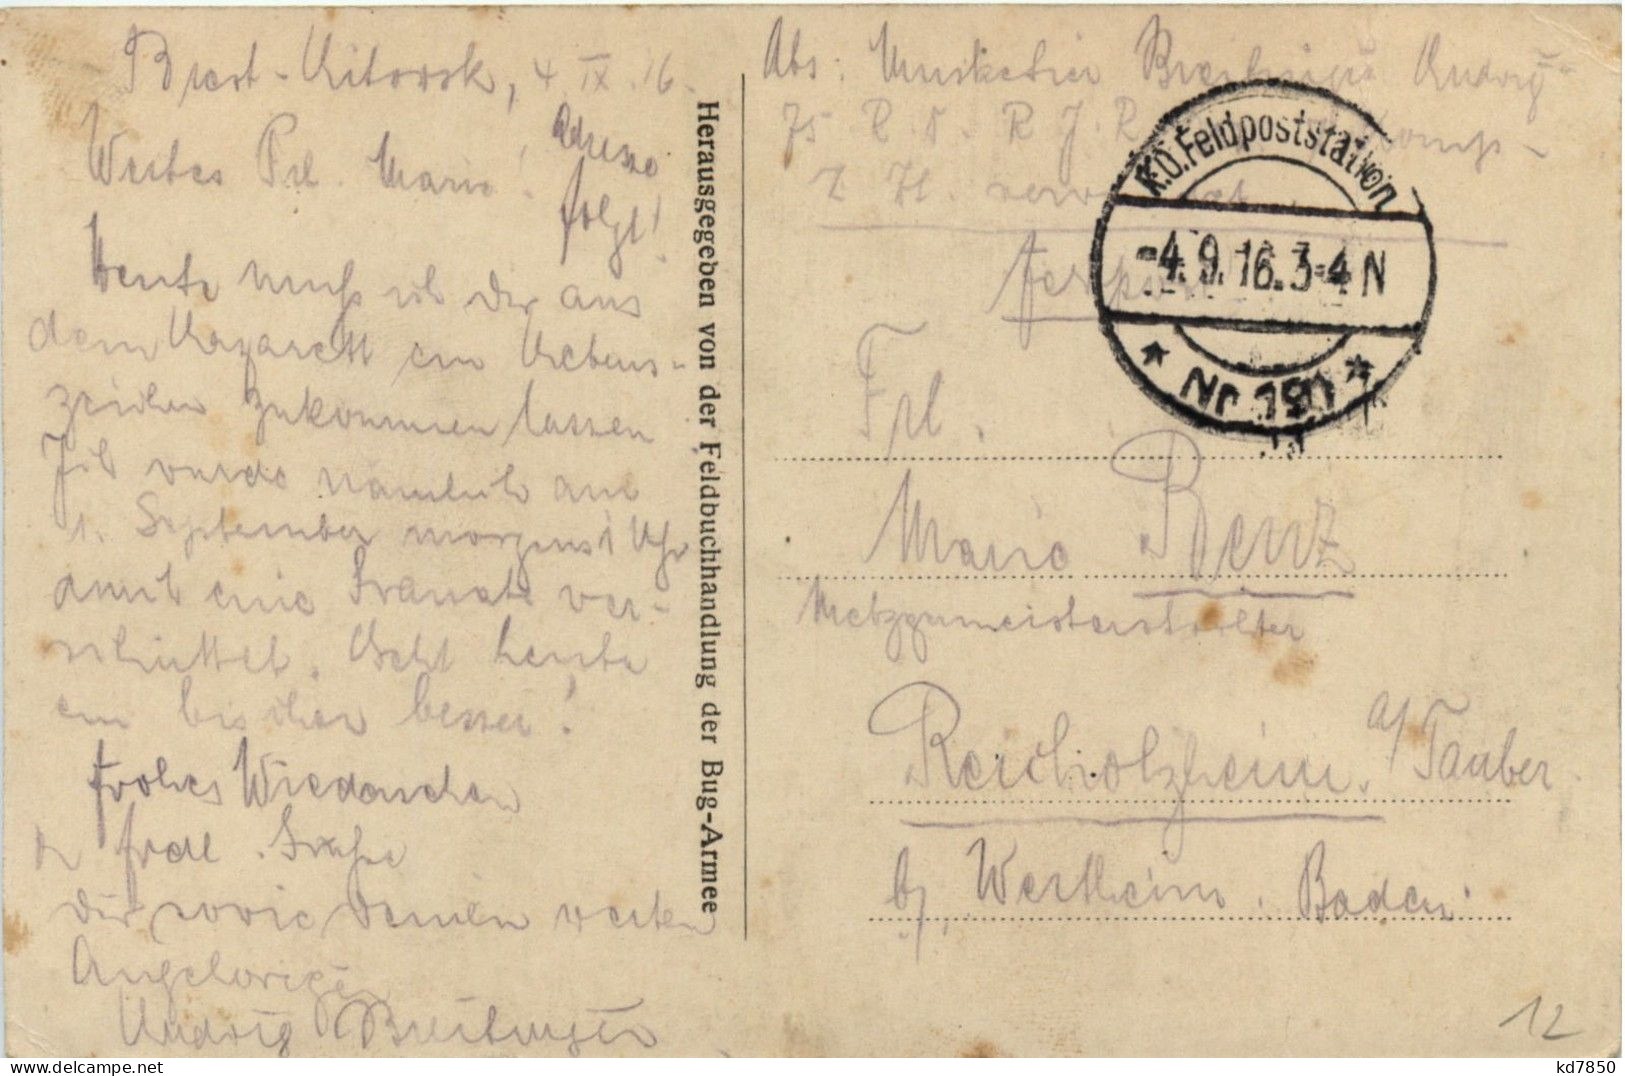 Brest-Litowsk, 4. IX. 16.
Wertes Frl. Marie!
Adresse
folgt!
Heute muß ich dir aus
dem Lazarett ein Lebens-
zeichen zukommen lassen
Ich wurde nämlich am
1. September morgens 1 Uhr
durch eine Granate ver-
schüttet. Geht heute
ein bischen besser!
Frohes Wiedersehen
u frdl. Grüße
dir sowie deinen werten
Angehörigen
Ludwig
Herausgegeben von der Feldbuchhandlung der Bug-Armee
Abs: Musketier Ludwig
75 R. D. R. J. R. Komp-
z. Zt. verw
K.D. Feldpoststation
-4.9.16.3-4 N
* Nr
Feldpost
Frl.
Marie Benz
Metzgermeisterstochter
Reicholzheim a/Tauber
b/ Wertheim. Baden.
12
kd7850